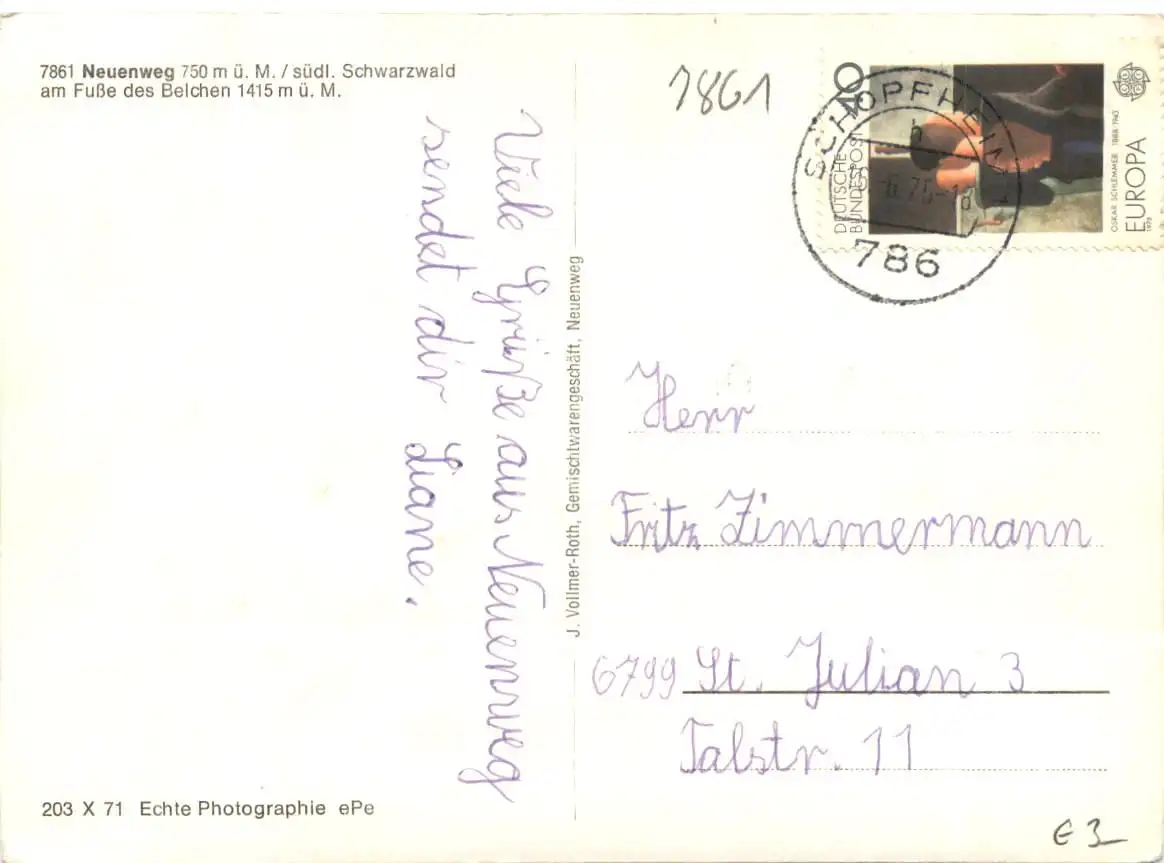 7861 Neuenweg 750 m ü. M. / südl. Schwarzwald
am Fuße des Belchen 1415 m ü. M.
Viele Grüße aus Neuenweg
sendet dir Liane.
J. Vollmer-Roth, Gemischtwarengeschäft, Neuenweg
203 X 71 Echte Photographie ePe
7861
40
DEUTSCHE
BUNDESPOST
OSKAR SCHLEMMER 1888-1943
EUROPA
1975
SCHOPFHEIM 1
h
6.75-18
786
Herr
Fritz Zimmermann
6799 St. Julian 3
Talstr. 11
€ 3